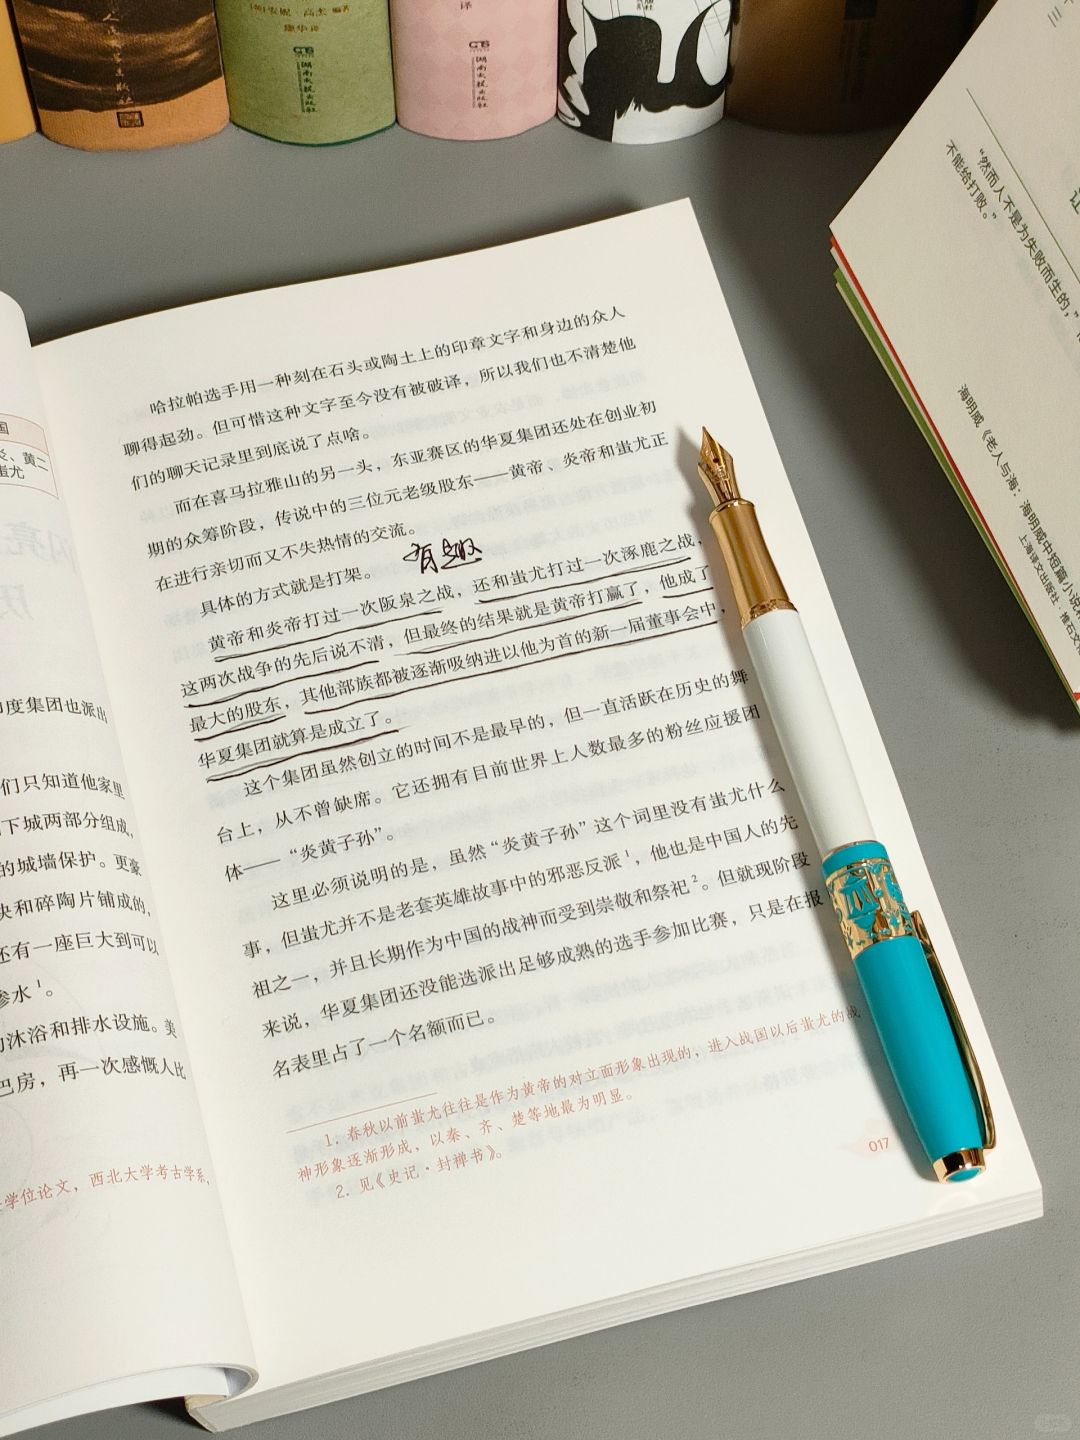 译
湖南文艺出版社
湖南文艺出版社
国
炎、黄二
蚩尤
印度集团也派出
们只知道他家里
下城两部分组成，
的城墙保护。更豪
块和碎陶片铺成的，
还有一座巨大到可以
渗水1。
沐浴和排水设施。美
巴房，再一次感慨人比
学位论文，西北大学考古学系，
哈拉帕选手用一种刻在石头或陶土上的印章文字和身边的众人
聊得起劲。但可惜这种文字至今没有被破译，所以我们也不清楚他
们的聊天记录里到底说了点啥。
而在喜马拉雅山的另一头，东亚赛区的华夏集团还处在创业初
期的众筹阶段，传说中的三位元老级股东——黄帝、炎帝和蚩尤正
在进行亲切而又不失热情的交流。
具体的方式就是打架。
有趣
黄帝和炎帝打过一次阪泉之战，还和蚩尤打过一次涿鹿之战，
这两次战争的先后说不清，但最终的结果就是黄帝打赢了，他成了
最大的股东，其他部族都被逐渐吸纳进以他为首的新一届董事会中，
华夏集团就算是成立了。
这个集团虽然创立的时间不是最早的，但一直活跃在历史的舞
台上，从不曾缺席。它还拥有目前世界上人数最多的粉丝应援团
体——“炎黄子孙”。
这里必须说明的是，虽然“炎黄子孙”这个词里没有蚩尤什么
事，但蚩尤并不是老套英雄故事中的邪恶反派1，他也是中国人的先
祖之一，并且长期作为中国的战神而受到崇敬和祭祀2。但就现阶段
来说，华夏集团还没能选派出足够成熟的选手参加比赛，只是在报
名表里占了一个名额而已。
1. 春秋以前蚩尤往往是作为黄帝的对立面形象出现的，进入战国以后蚩尤的战
神形象逐渐形成，以秦、齐、楚等地最为明显。
2. 见《史记·封禅书》。
017
“然而人不是为失败而生的，”
不能给打败。”
海明威《老人与海：海明威中短篇小说
上海译文出版社